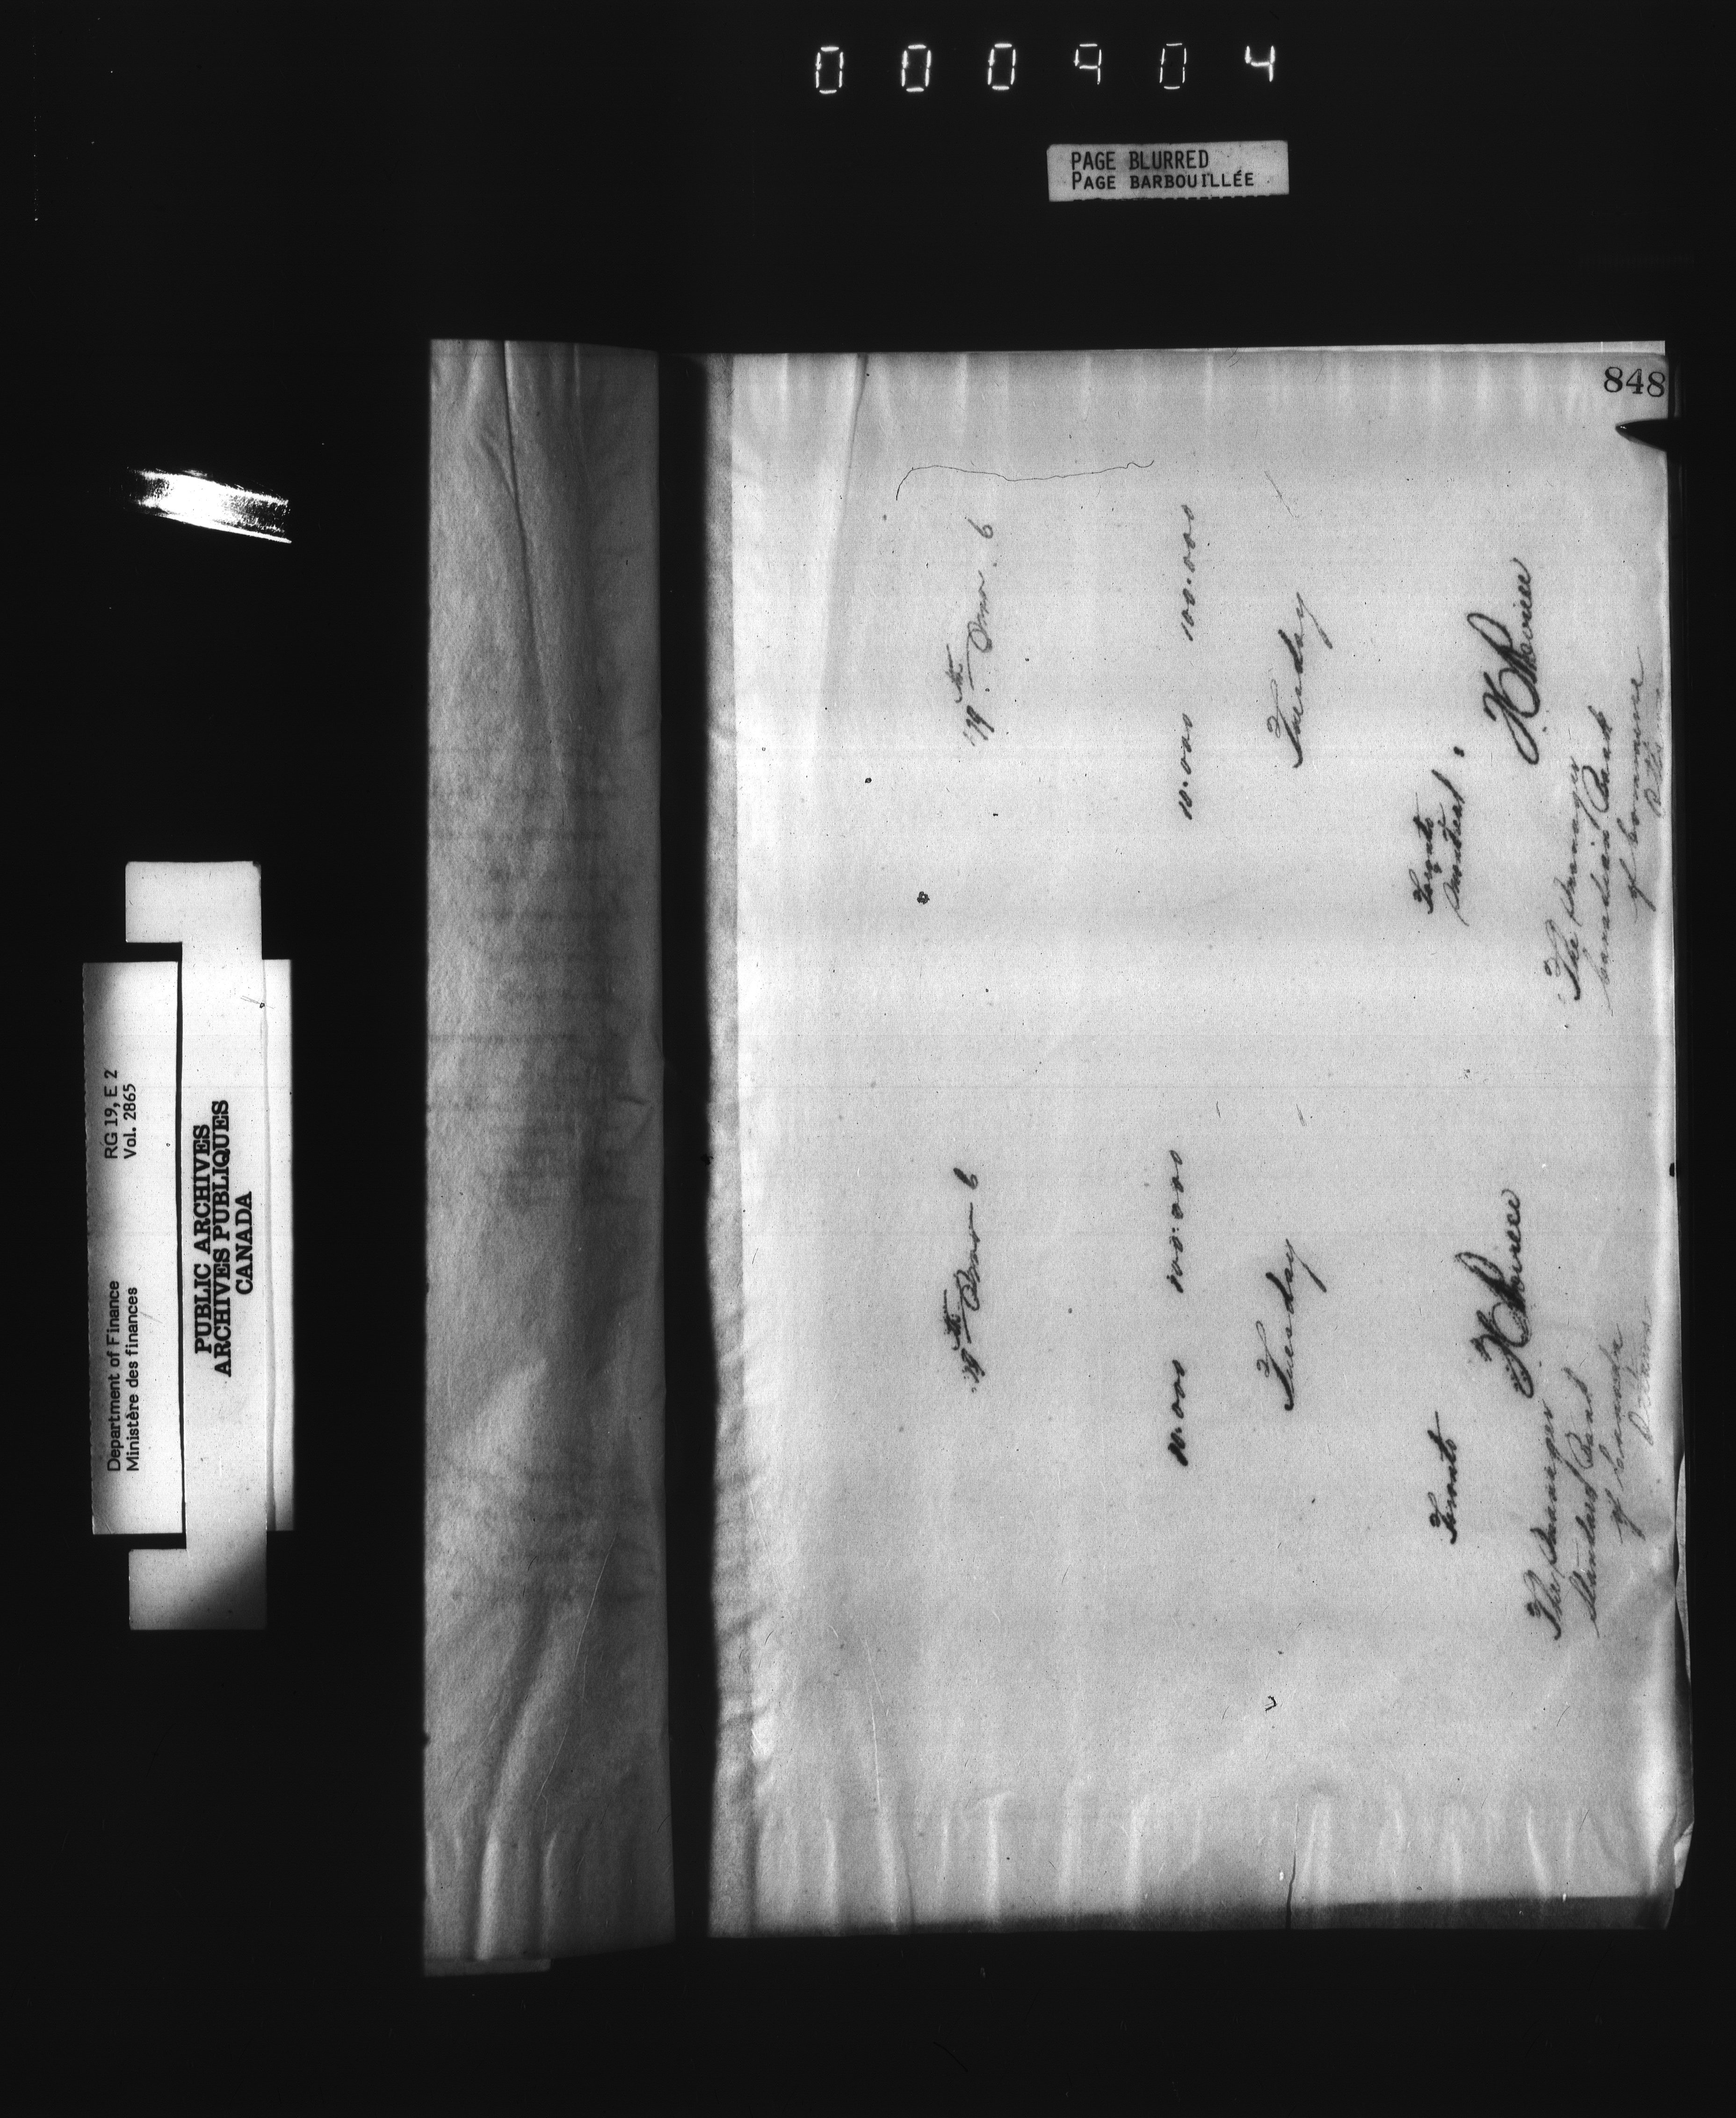 000904
PAGE BLURRED
PAGE BARBOUILLÉE
848
Department of Finance RG 19, E 2
Ministère des finances Vol. 2865
PUBLIC ARCHIVES
ARCHIVES PUBLIQUES
CANADA
19th 6
10.000 100.000
Tuesday
Toronto
The Manager
Standard Bank
of Canada
Ottawa
19th 6
10.000 100.000
Tuesday
Toronto
Montreal
The Manager
Canadian Bank
of Commerce
Ottawa